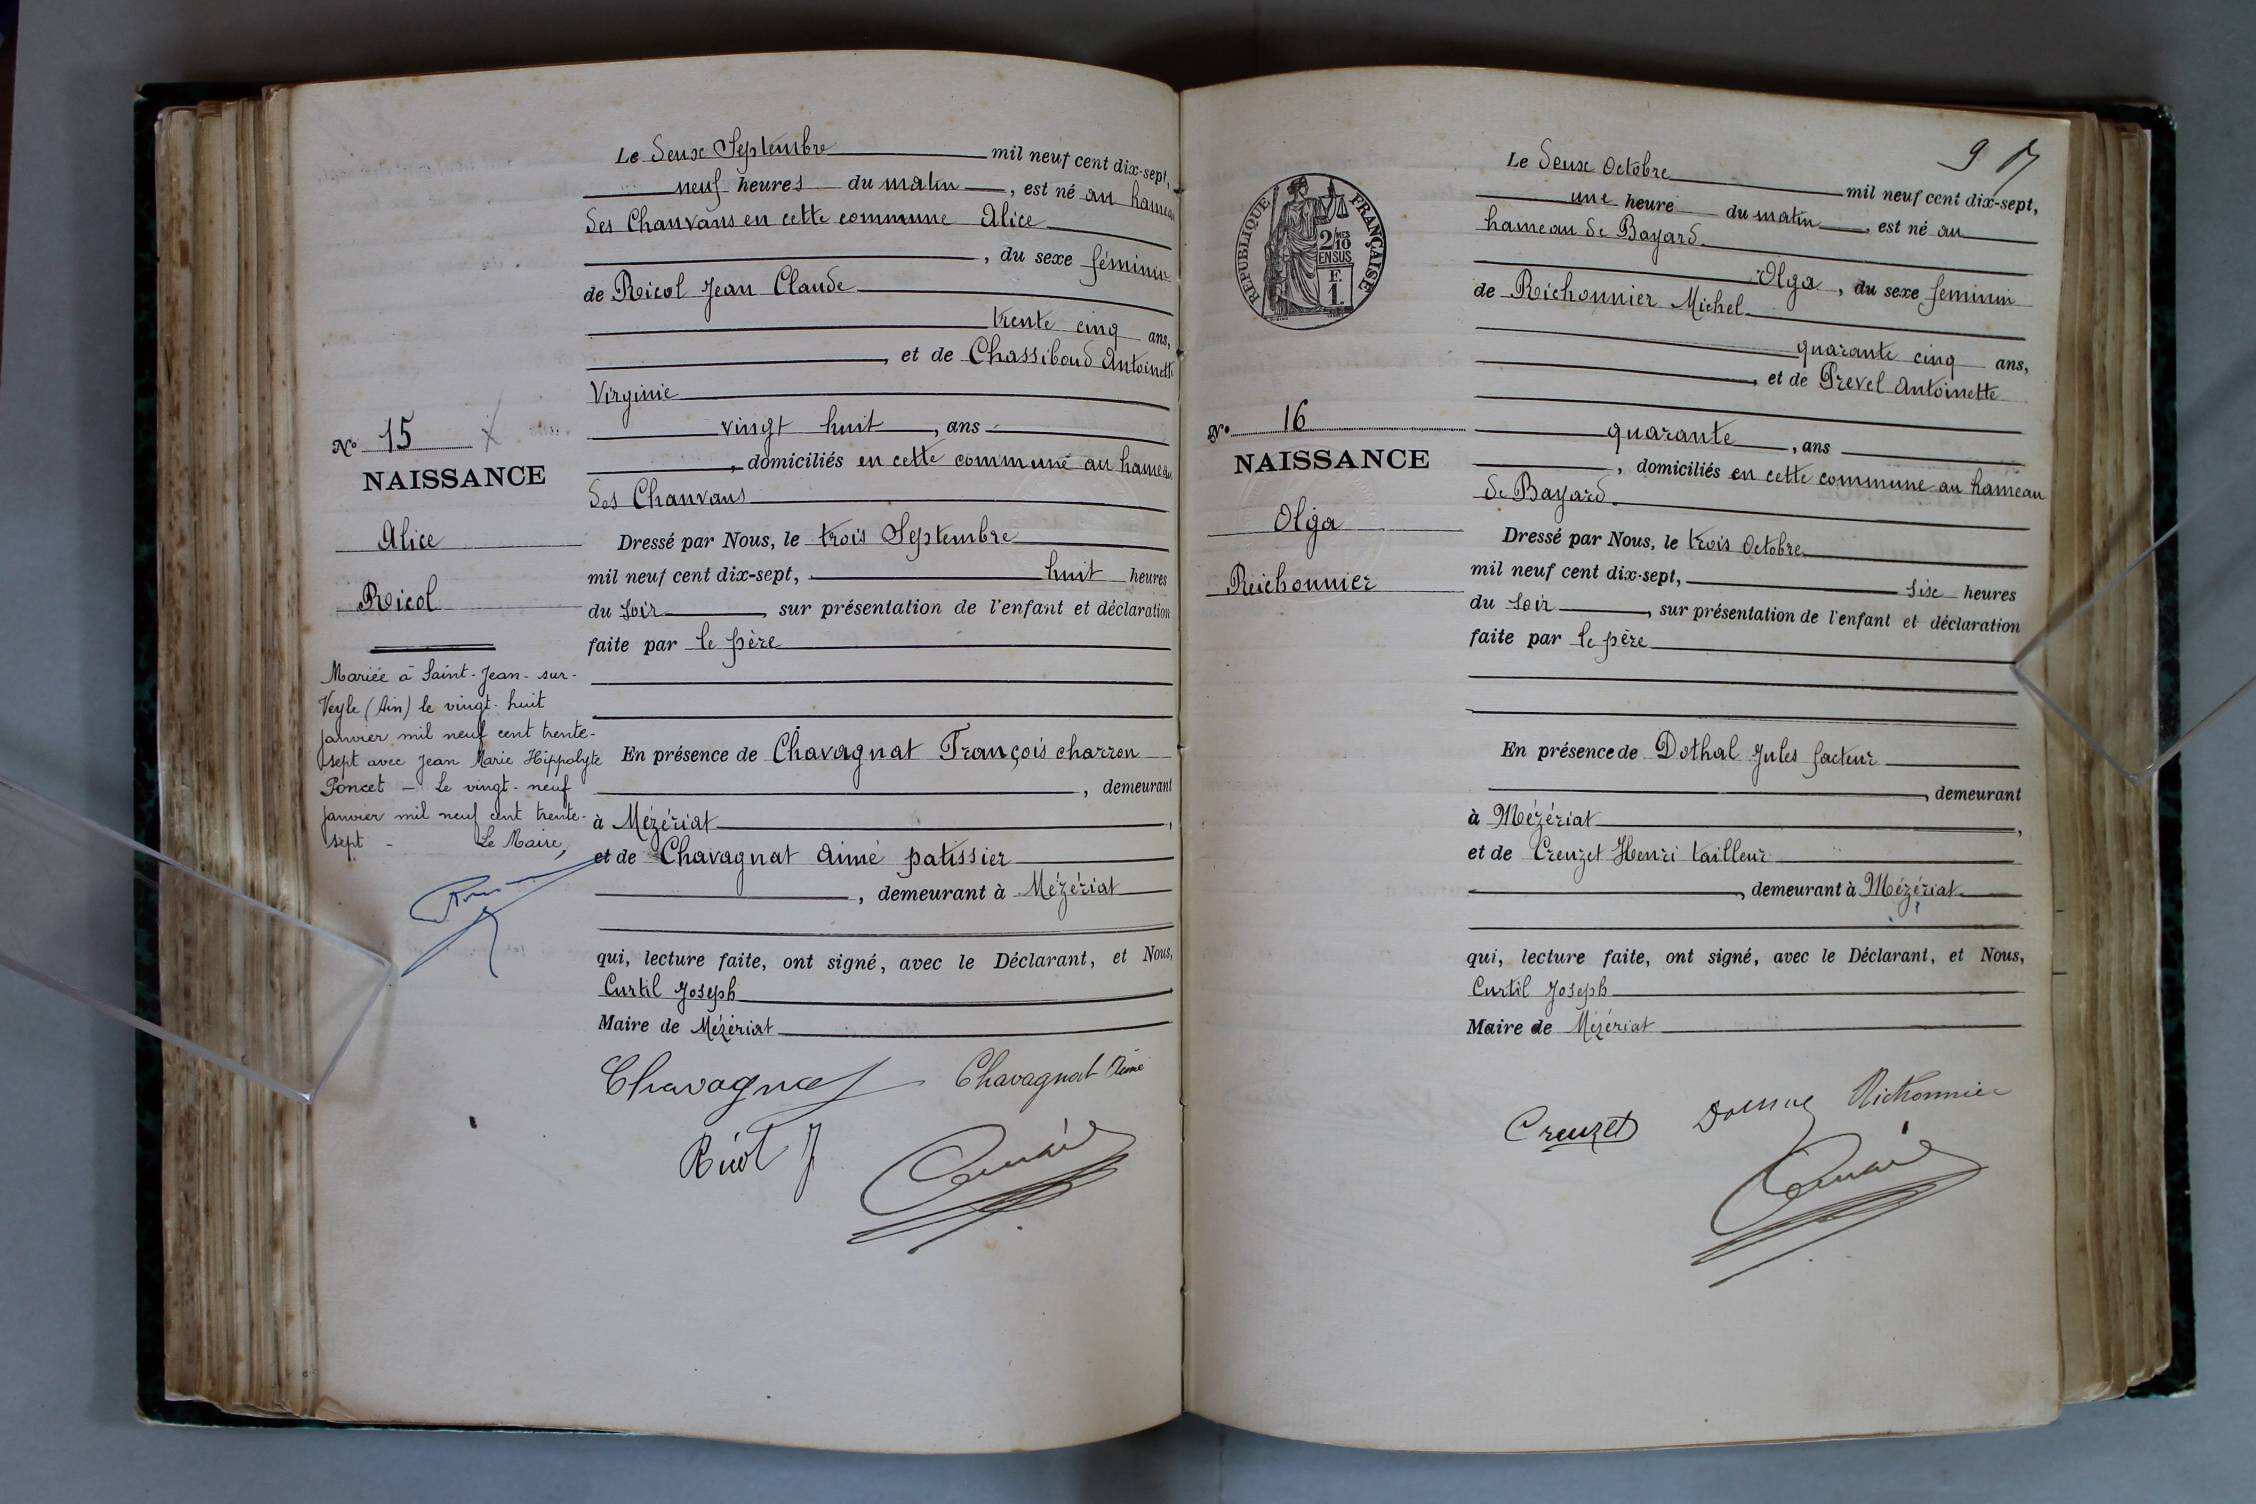 Le deux Septembre mil neuf cent dix-sept,
neuf heures du matin, est né au hameau
des Chauvans en cette commune Alice
, du sexe féminin
de Ricol Jean Claude
trente cinq ans,
, et de Chassiboud Antoinette
Virginie
vingt huit, ans
, domiciliés en cette commune au hameau
des Chauvans
Dressé par Nous, le trois Septembre
mil neuf cent dix-sept, huit heures
du soir, sur présentation de l'enfant et déclaration
faite par le père
En présence de Chavagnat François charron
, demeurant
à Mézériat,
et de Chavagnat Aimé patissier
, demeurant à Mézériat
qui, lecture faite, ont signé, avec le Déclarant, et Nous,
Curtil Joseph
Maire de Mézériat
Chavagnat Chavagnat Aimé
Ricol J
No 15
NAISSANCE
Alice
Ricol
Mariée à Saint-Jean-sur-
Veyle (Ain) le vingt-huit
janvier mil neuf cent trente-
sept avec Jean Marie Hippolyte
Poncet - Le vingt-neuf
janvier mil neuf cent trente-
sept - Le Maire,
9
RÉPUBLIQUE FRANÇAISE
2/10 MES
EN SUS
F.
1.
Le deux Octobre mil neuf cent dix-sept,
une heure du matin, est né au
hameau de Bayard
Olga, du sexe feminin
de Richonnier Michel
quarante cinq ans,
, et de Prevel Antoinette
quarante, ans
, domiciliés en cette commune au hameau
de Bayard
Dressé par Nous, le trois Octobre
mil neuf cent dix-sept, six heures
du soir, sur présentation de l'enfant et déclaration
faite par le père
En présence de Dothal Jules facteur
, demeurant
à Mézériat,
et de Creuzet Henri tailleur
, demeurant à Mézériat
qui, lecture faite, ont signé, avec le Déclarant, et Nous,
Curtil Joseph
Maire de Mézériat
Creuzet Richonnier
No 16
NAISSANCE
Olga
Reichonnier